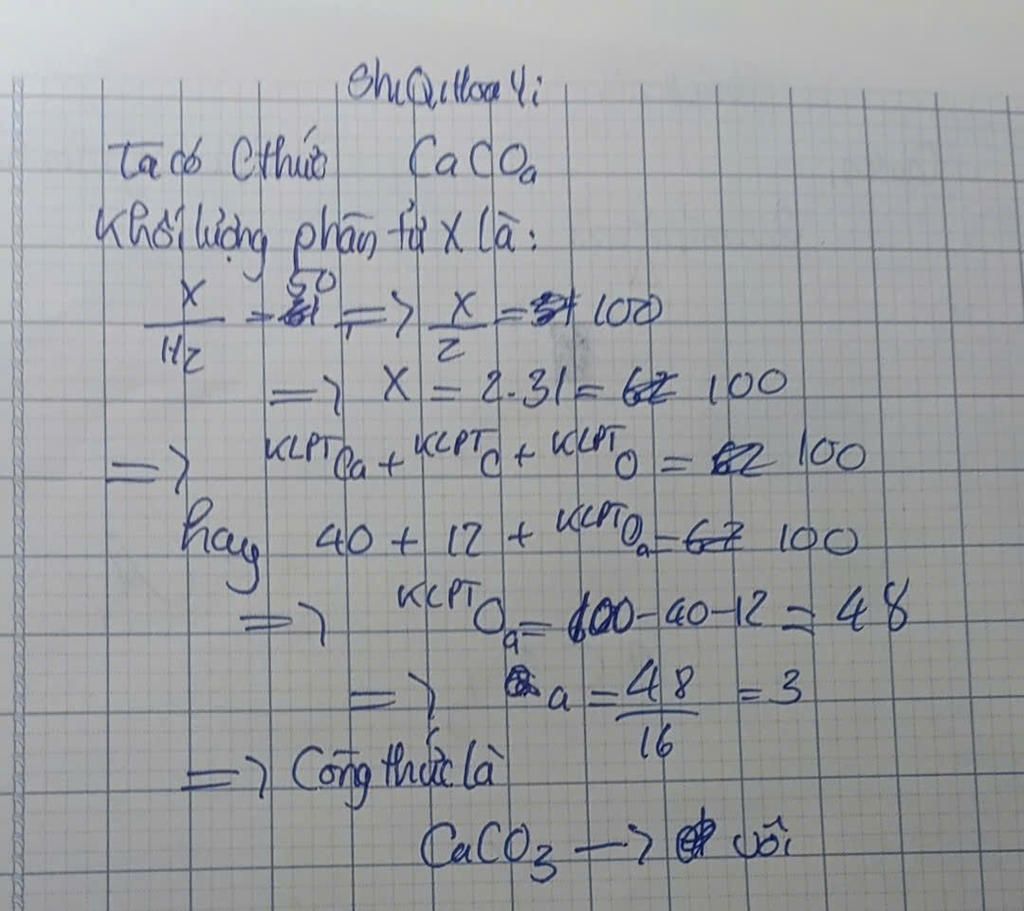 Ta có Cthức CaCOa
Khối lượng phân tử X là:
X/H2 = 50 => X/2 = 100
=> X = 2.31 = 62 100
=> KLPTCa + KLPTC + KLPTO = 62 100
hay 40 + 12 + KLPTOa = 62 100
=> KLPTOa = 100 - 40 - 12 = 48
=> a = 48/16 = 3
=> Công thức là
CaCO3 -> vôi